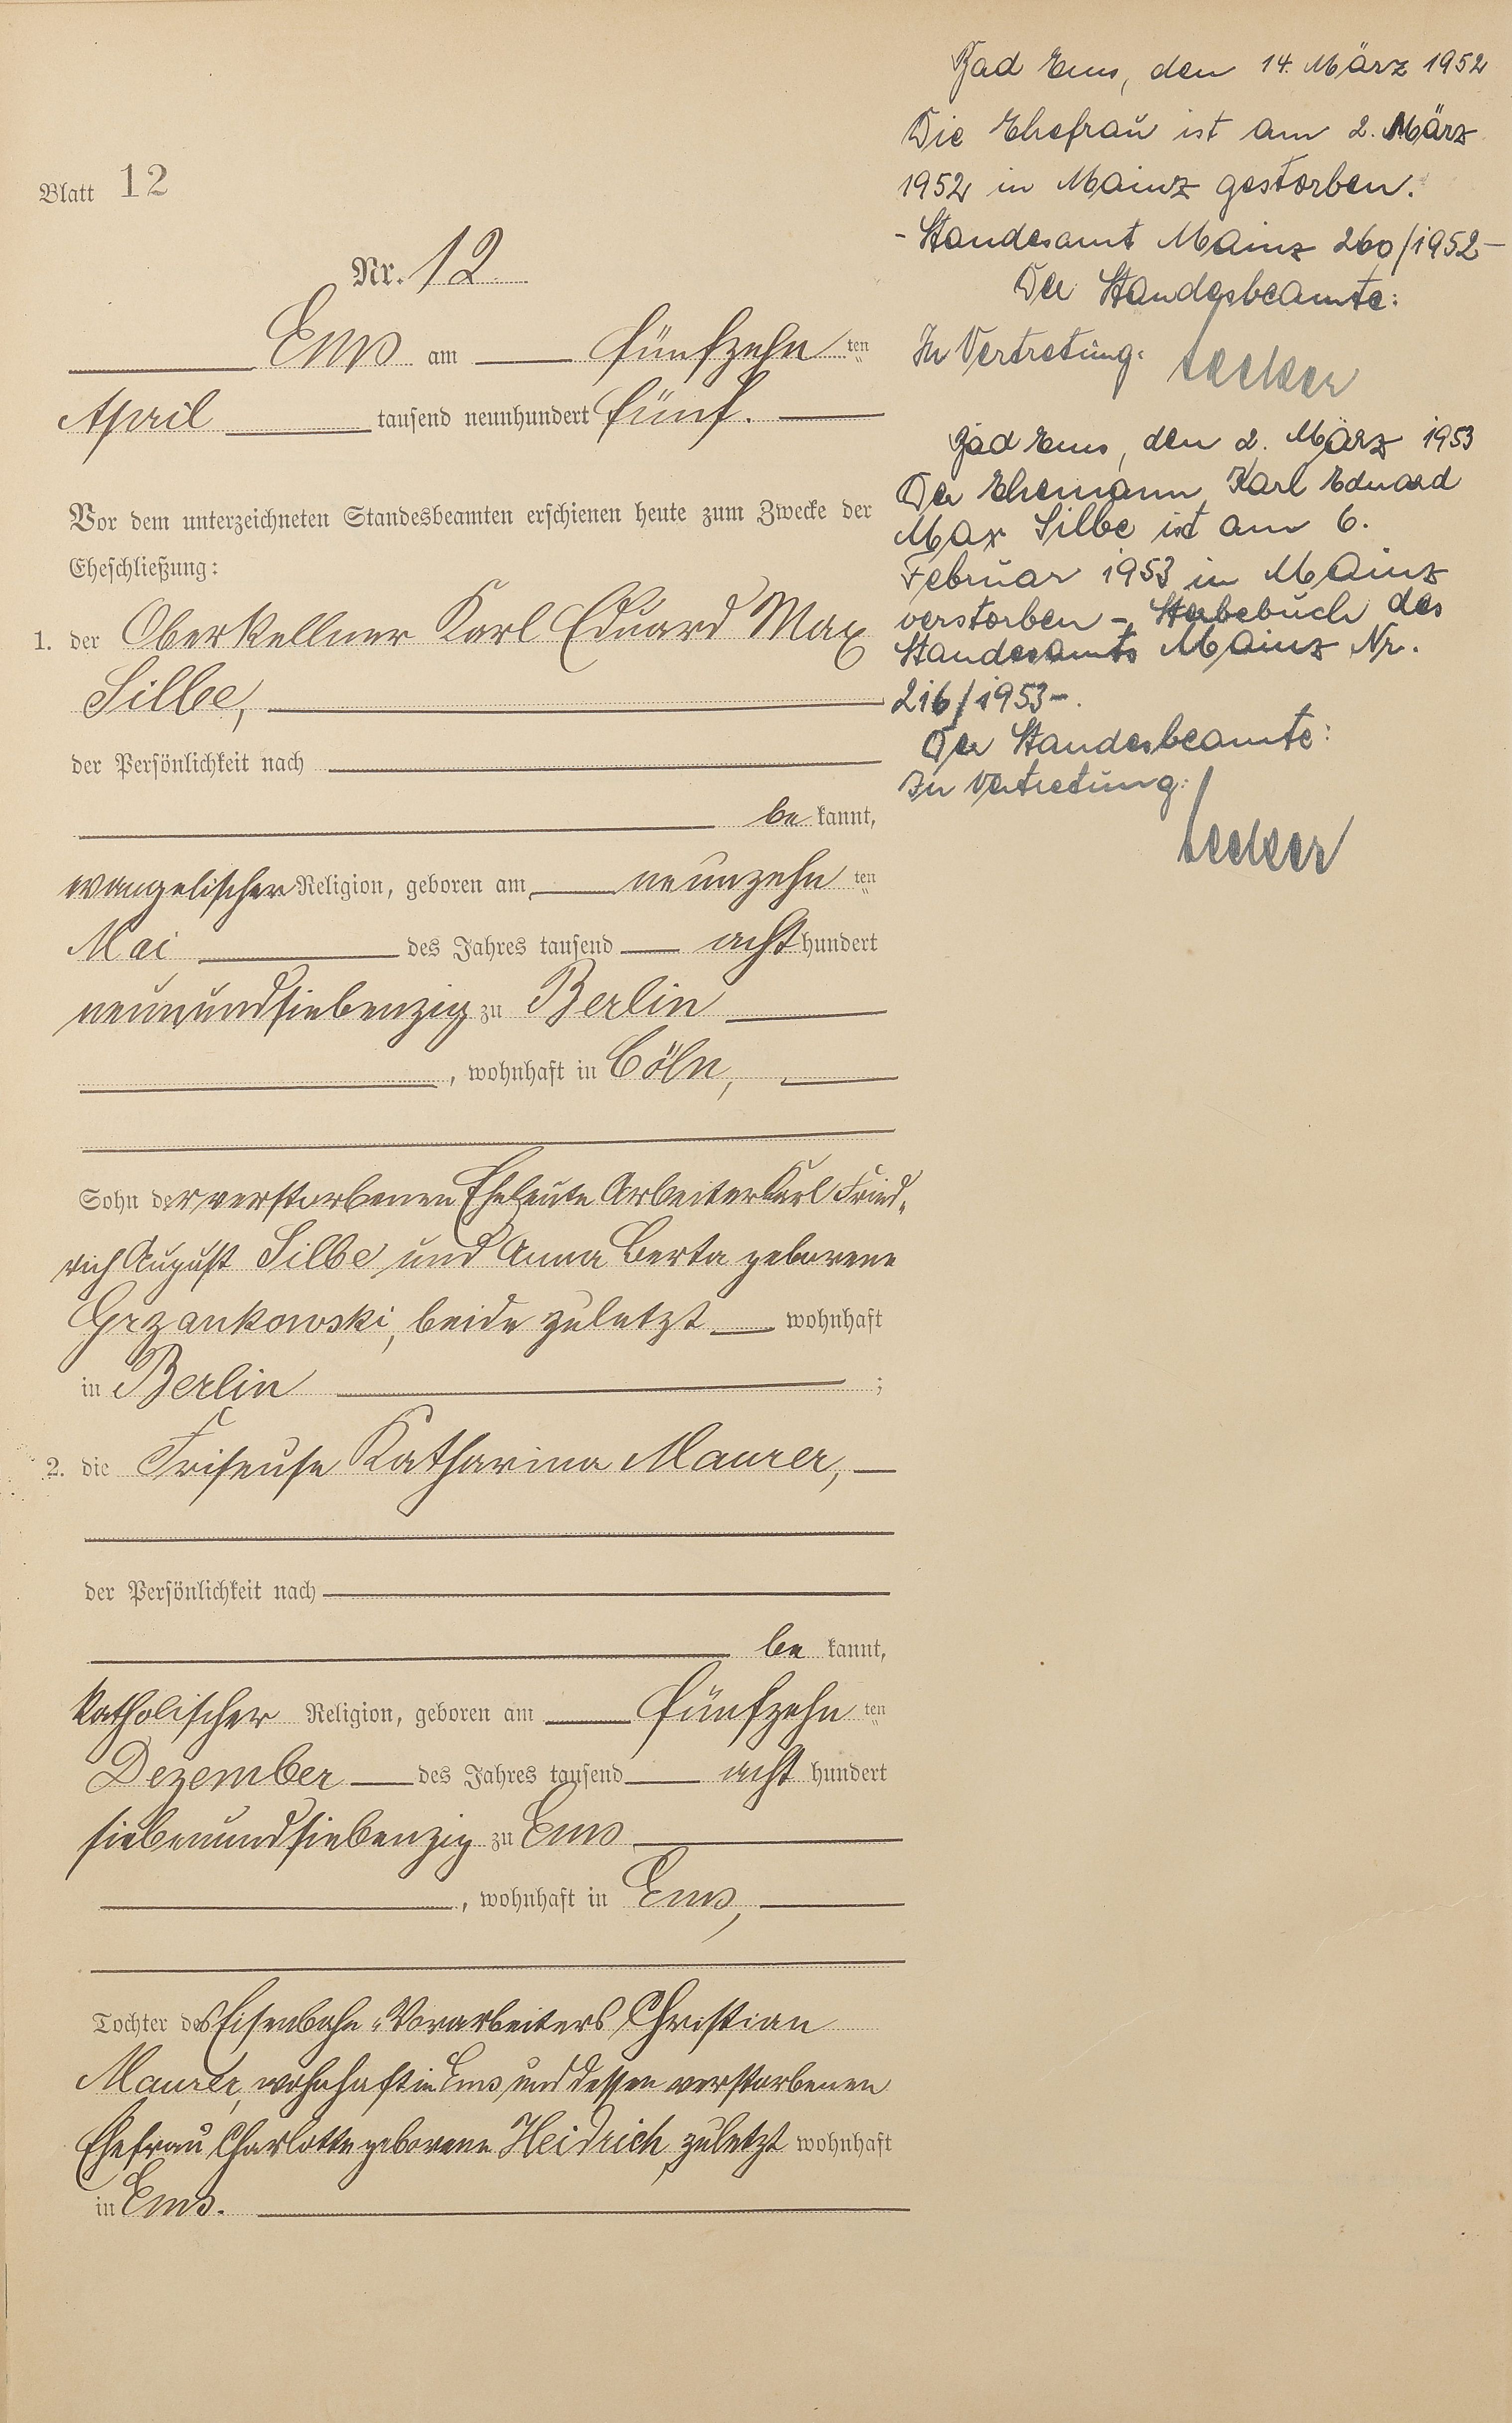 Blatt 12
Nr. 12
Ems am fünfzehn ten
April tausend neunhundert fünf.
Vor dem unterzeichneten Standesbeamten erschienen heute zum Zwecke der
Eheschließung:
1. der Oberkellner Karl Eduard Max
Silbe,
der Persönlichkeit nach
be kannt,
evangelischer Religion, geboren am neunzehn ten
Mai des Jahres tausend acht hundert
neunundsiebenzig zu Berlin
, wohnhaft in Cöln,
Sohn der verstorbenen Eheleute Arbeiter Karl Fried-
rich August Silbe und Anna Berta geborene
Grzankowski, beide zuletzt wohnhaft
in Berlin ;
2. die Friseuse Katharina Maurer,
der Persönlichkeit nach
be kannt,
katholischer Religion, geboren am fünfzehn ten
Dezember des Jahres tausend acht hundert
siebenundsiebenzig zu Ems
, wohnhaft in Ems,
Tochter des Eisenbahn-Vorarbeiters Christian
Maurer, wohnhaft in Ems und dessen verstorbenen
Ehefrau Charlotte geborene Heidrich, zuletzt wohnhaft
in Ems.
Bad Ems, den 14. März 1952
Die Ehefrau ist am 2. März
1952 in Mainz gestorben.
- Standesamt Mainz 260/1952 -
Der Standesbeamte:
In Vertretung:
Bad Ems, den 2. März 1953
Der Ehemann Karl Eduard
Max Silbe ist am 6.
Februar 1953 in Mainz
verstorben - Sterbebuch des
Standesamts Mainz Nr.
216/1953 -.
Der Standesbeamte:
In Vertretung: